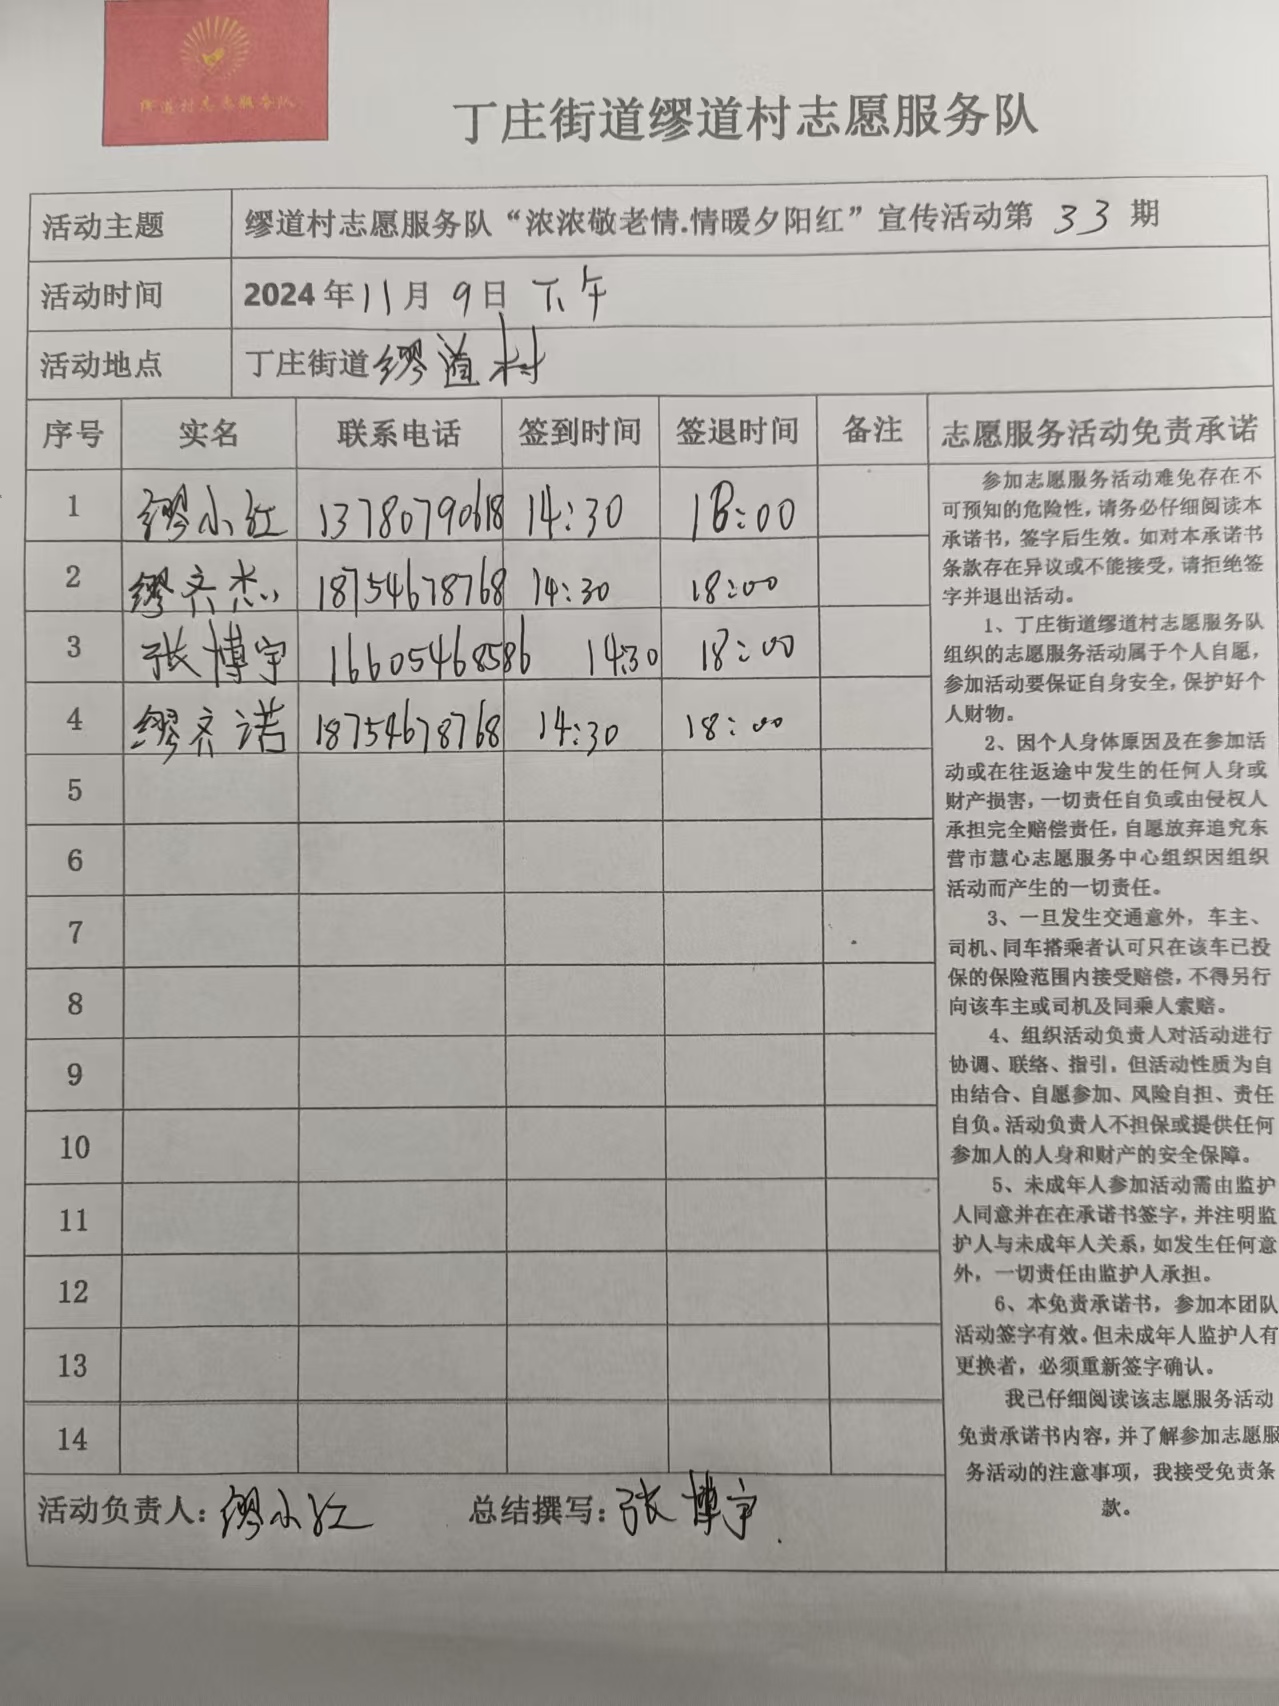 缪道村志愿服务队
丁庄街道缪道村志愿服务队
活动主题 缪道村志愿服务队“浓浓敬老情.情暖夕阳红”宣传活动第 33 期
活动时间 2024年11月9日 下午
活动地点 丁庄街道缪道村
序号 实名 联系电话 签到时间 签退时间 备注 志愿服务活动免责承诺
1 缪小红 13780790618 14:30 18:00
2 缪齐杰 18754678768 14:30 18:00
3 张博宇 16605468586 14:30 18:00
4 缪齐诺 18754678768 14:30 18:00
5
6
7
8
9
10
11
12
13
14
参加志愿服务活动难免存在不
可预知的危险性，请务必仔细阅读本
承诺书，签字后生效。如对本承诺书
条款存在异议或不能接受，请拒绝签
字并退出活动。
1、丁庄街道缪道村志愿服务队
组织的志愿服务活动属于个人自愿，
参加活动要保证自身安全，保护好个
人财物。
2、因个人身体原因及在参加活
动或在往返途中发生的任何人身或
财产损害，一切责任自负或由侵权人
承担完全赔偿责任，自愿放弃追究东
营市慧心志愿服务中心组织因组织
活动而产生的一切责任。
3、一旦发生交通意外，车主、
司机、同车搭乘者认可只在该车已投
保的保险范围内接受赔偿，不得另行
向该车主或司机及同乘人索赔。
4、组织活动负责人对活动进行
协调、联络、指引，但活动性质为自
由结合、自愿参加、风险自担、责任
自负。活动负责人不担保或提供任何
参加人的人身和财产的安全保障。
5、未成年人参加活动需由监护
人同意并在在承诺书签字，并注明监
护人与未成年人关系，如发生任何意
外，一切责任由监护人承担。
6、本免责承诺书，参加本团队
活动签字有效。但未成年人监护人有
更换者，必须重新签字确认。
我已仔细阅读该志愿服务活动
免责承诺书内容，并了解参加志愿服
务活动的注意事项，我接受免责条
款。
活动负责人：缪小红 总结撰写：张博宇